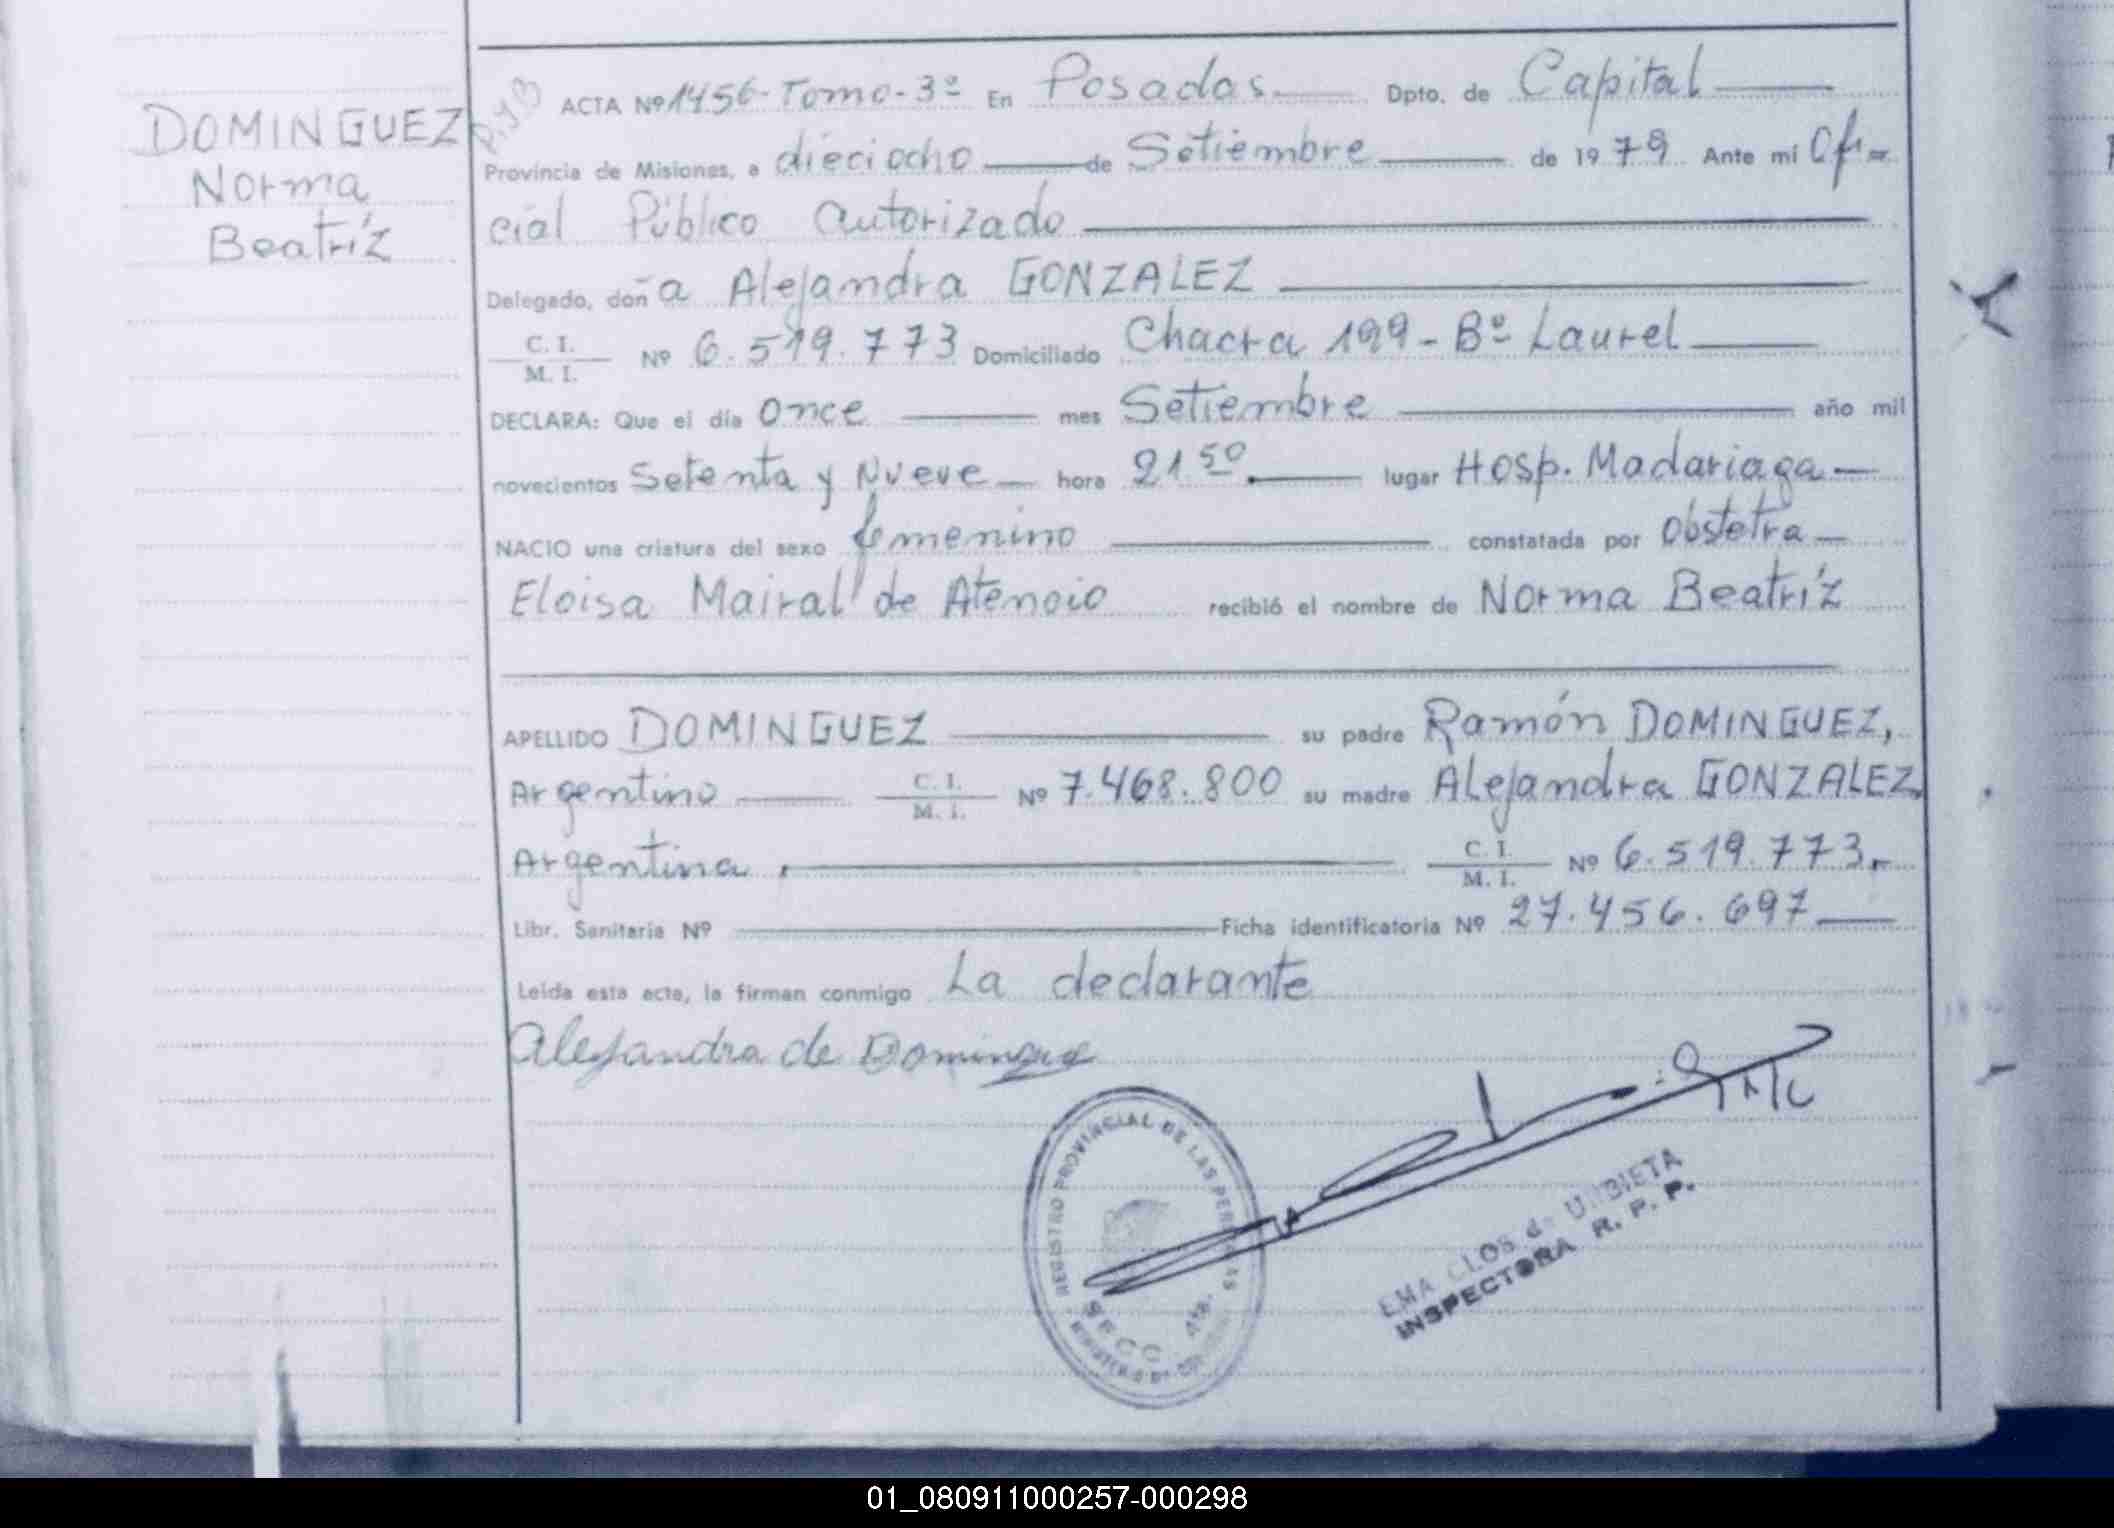 DOMINGUEZ
Norma
Beatríz
ACTA Nº 1456-Tomo-3º En Posadas Dpto. de Capital
Provincia de Misiones, a dieciocho de Setiembre de 1979 Ante mi Ofi=
cial Público Autorizado
Delegado, doña Alejandra GONZALEZ
C. I.
M. I. Nº 6.519.773 Domiciliado Chacra 199-Bº Laurel
DECLARA: Que el día Once mes Setiembre año mil
novecientos Setenta y Nueve hora 21.50 lugar Hosp. Madariaga
NACIO una criatura del sexo femenino constatada por Obstetra
Eloisa Mairal de Atencio recibió el nombre de Norma Beatríz
APELLIDO DOMINGUEZ su padre Ramón DOMINGUEZ,
Argentino C. I. M. I. Nº 7.468.800 su madre Alejandra GONZALEZ,
Argentina, C. I. M. I. Nº 6.519.773.-
Libr. Sanitaria Nº Ficha identificatoria Nº 27.456.697
Leída esta acta, la firman conmigo La declarante
Alejandra de Domingue
REGISTRO PROVINCIAL DE LAS PERSONAS
SECC.
EMA CLOS de URBIETA
INSPECTORA R. P. P.
01_080911000257-000298